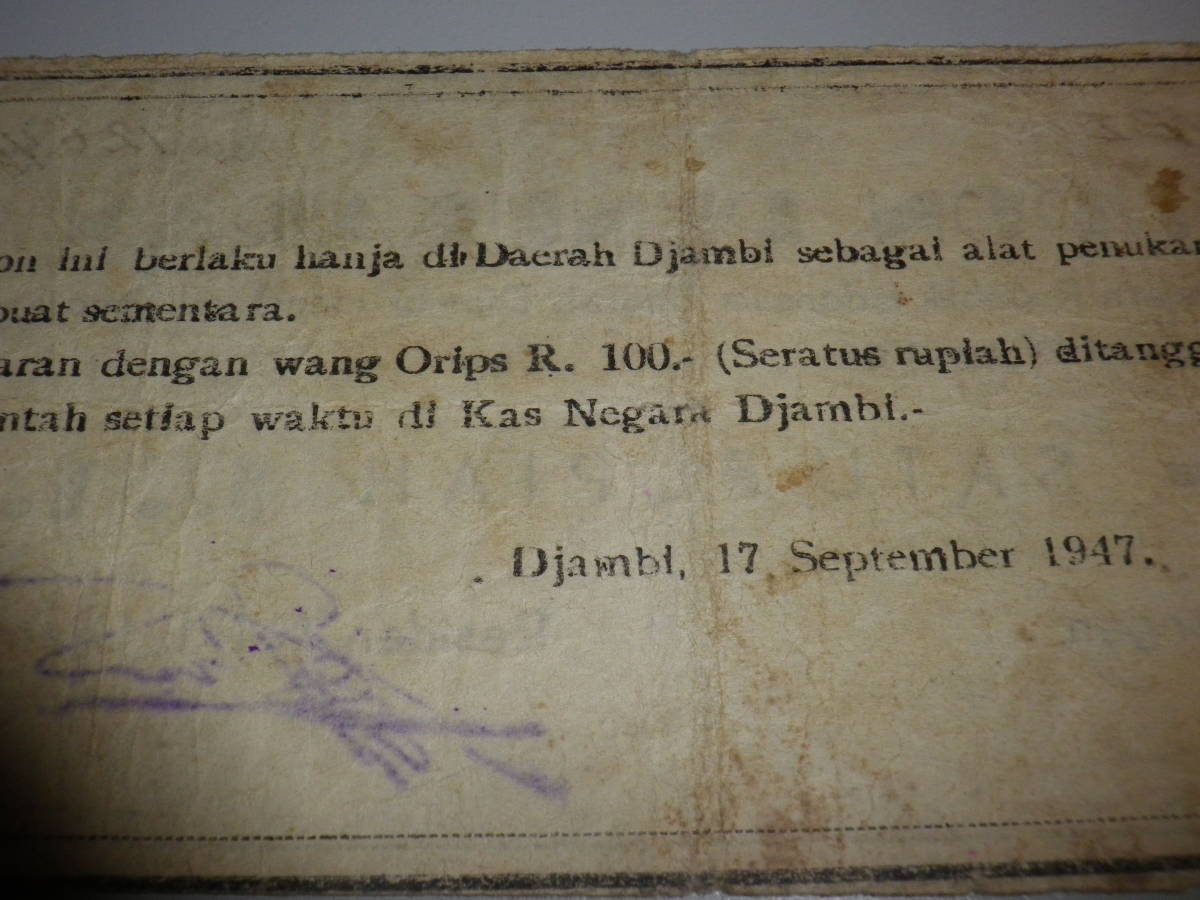 on ini berlaku hanja di Daerah Djambi sebagai alat penukar
buat sementara.
aran dengan wang Orips R. 100.- (Seratus rupiah) ditangg
ntah setiap waktu di Kas Negara Djambi.-
Djambi, 17 September 1947.